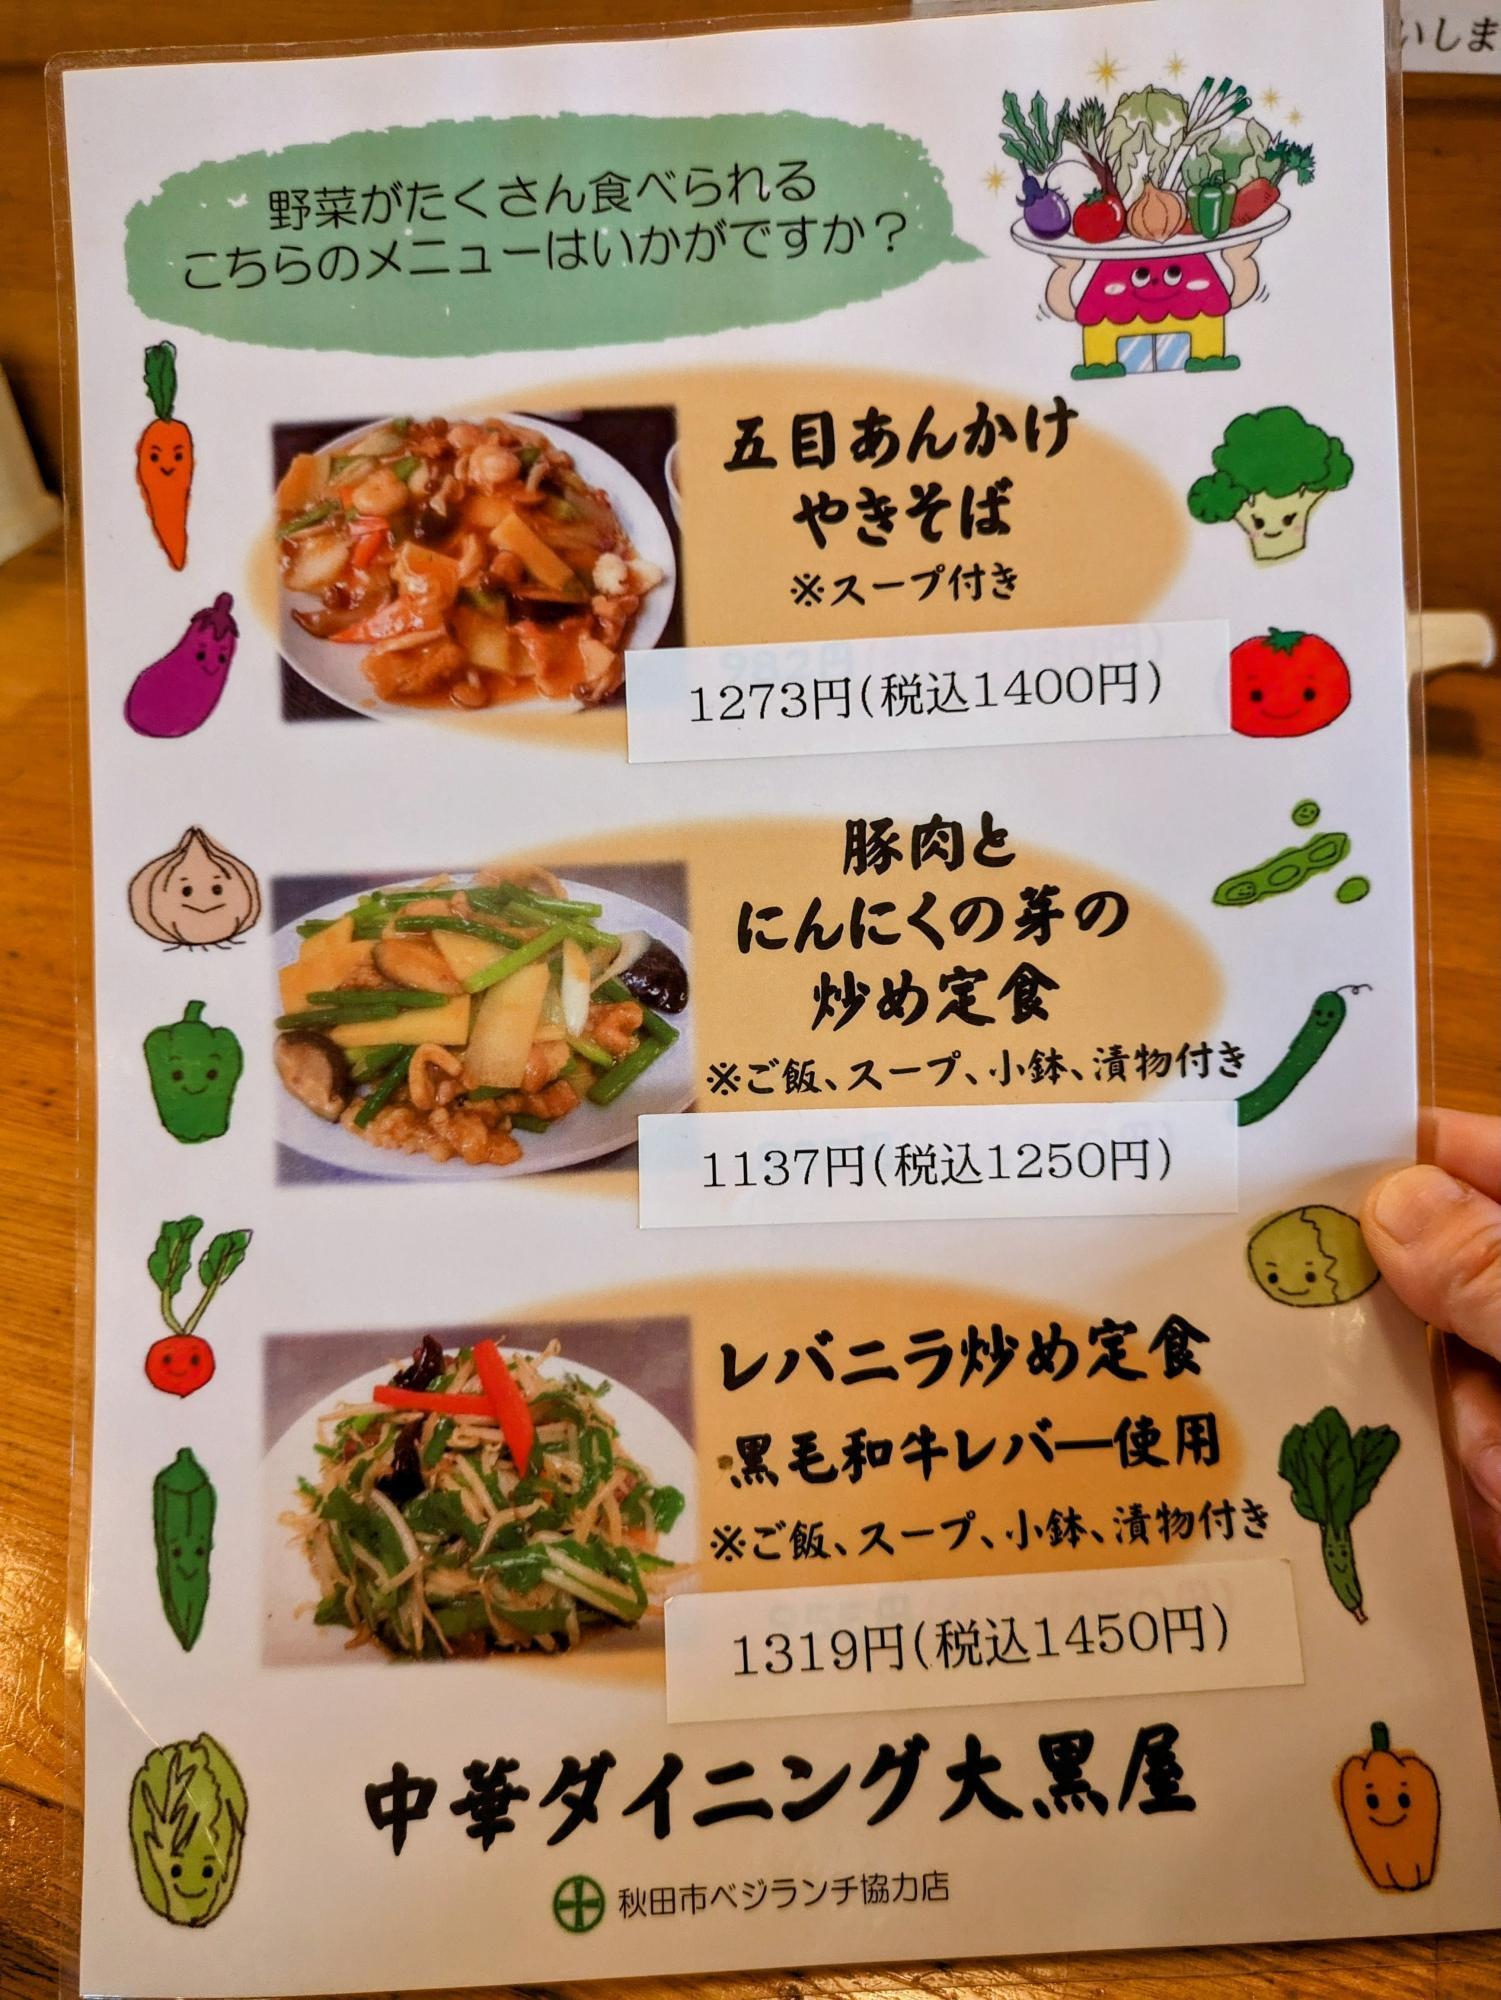 いしま
野菜がたくさん食べられる
こちらのメニューはいかがですか？
五目あんかけ
やきそば
※スープ付き
1273円(税込1400円)
豚肉と
にんにくの芽の
炒め定食
※ご飯、スープ、小鉢、漬物付き
1137円(税込1250円)
レバニラ炒め定食
黒毛和牛レバー使用
※ご飯、スープ、小鉢、漬物付き
1319円(税込1450円)
中華ダイニング大黒屋
秋田市ベジランチ協力店